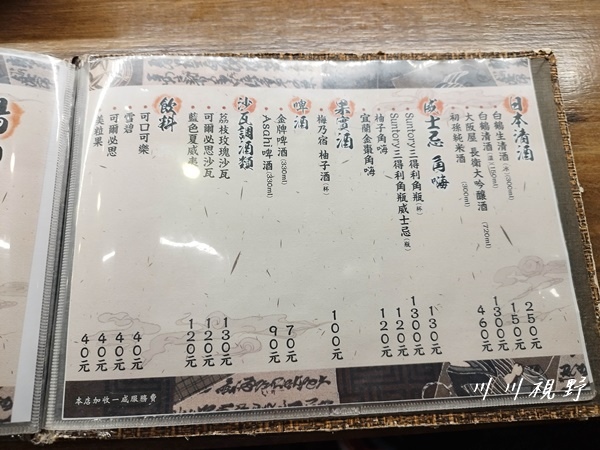 日本清酒
白鶴生清酒(冰)(300ml) 250元
白鶴清酒(溫)(150ml) 150元
大阪屋 長衛大吟釀酒 (720ml) 1300元
初孫純米酒 (300ml) 460元
威士忌 角嗨
Suntory三得利角瓶(杯) 130元
Suntory三得利角瓶威士忌(瓶) 1300元
柚子角嗨 120元
宜蘭金棗角嗨 120元
果實酒
梅乃宿 柚子酒(杯) 100元
啤酒
金牌啤酒(330ml) 70元
Asahi啤酒(330ml) 90元
沙瓦調酒類
荔枝玫瑰沙瓦 130元
可爾必思沙瓦 120元
藍色夏威夷 120元
飲料
可口可樂 40元
雪碧 40元
可爾必思 40元
美粒果 40元
本店加收一成服務費
川川視野